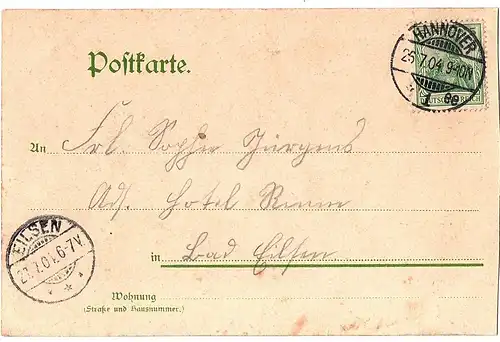 HANNOVER
25.7.04.9-10N
1 ee
DEUTSCHES REICH
Postkarte.
An Frl. Sophie Jürgens
Adr. Hotel
in Bad Eilsen
EILSEN
6-7V
Wohnung
(Straße und Hausnummer.)